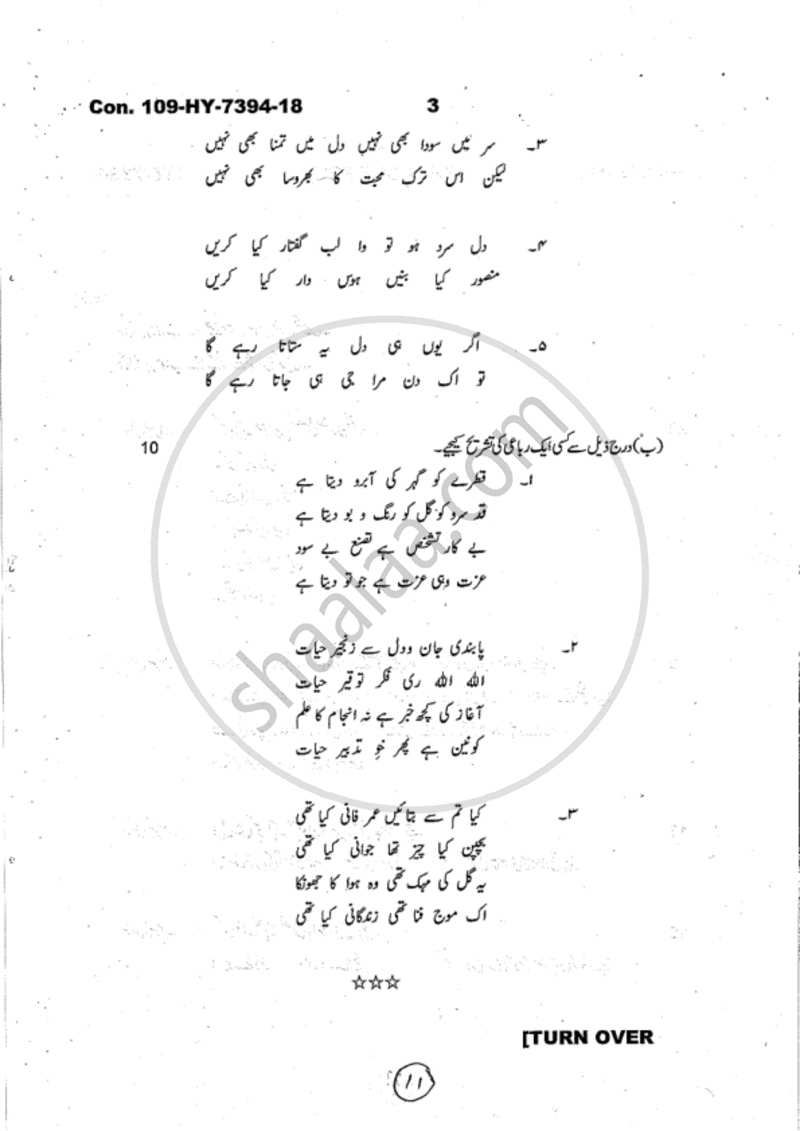 Con. 109-HY-7394-18 3
۳۔ سر میں سودا بھی نہیں دل میں تمنا بھی نہیں
لیکن اس ترک محبت کا بھروسا بھی نہیں
۴۔ دل سرد ہو تو وا لب گفتار کیا کریں
منصور کیا بنیں ہوس دار کیا کریں
۵۔ اگر یوں ہی دل یہ ستاتا رہے گا
تو اک دن مرا جی ہی جاتا رہے گا
(ب) درج ذیل سے کسی ایک رباعی کی تشریح کیجیے۔ 10
۱۔ قطرے کو گہر کی آبرو دیتا ہے
قد سرو کو گل کو رنگ و بو دیتا ہے
بے کار تشخص ہے تصنع بے سود
عزت وہی عزت ہے جو تو دیتا ہے
۲۔ پابندی جان و دل سے زنجیر حیات
اللہ اللہ ری فکر توقیر حیات
آغاز کی کچھ خبر ہے نہ انجام کا علم
کونین ہے پھر تدبیر حیات
۳۔ کیا تم سے بتائیں عمر فانی کیا تھی
بچپن کیا چیز تھا جوانی کیا تھی
یہ گل کی مہک تھی وہ ہوا کا جھونکا
اک موج فنا تھی زندگانی کیا تھی
☆☆☆
[TURN OVER
11
shaalaa.com